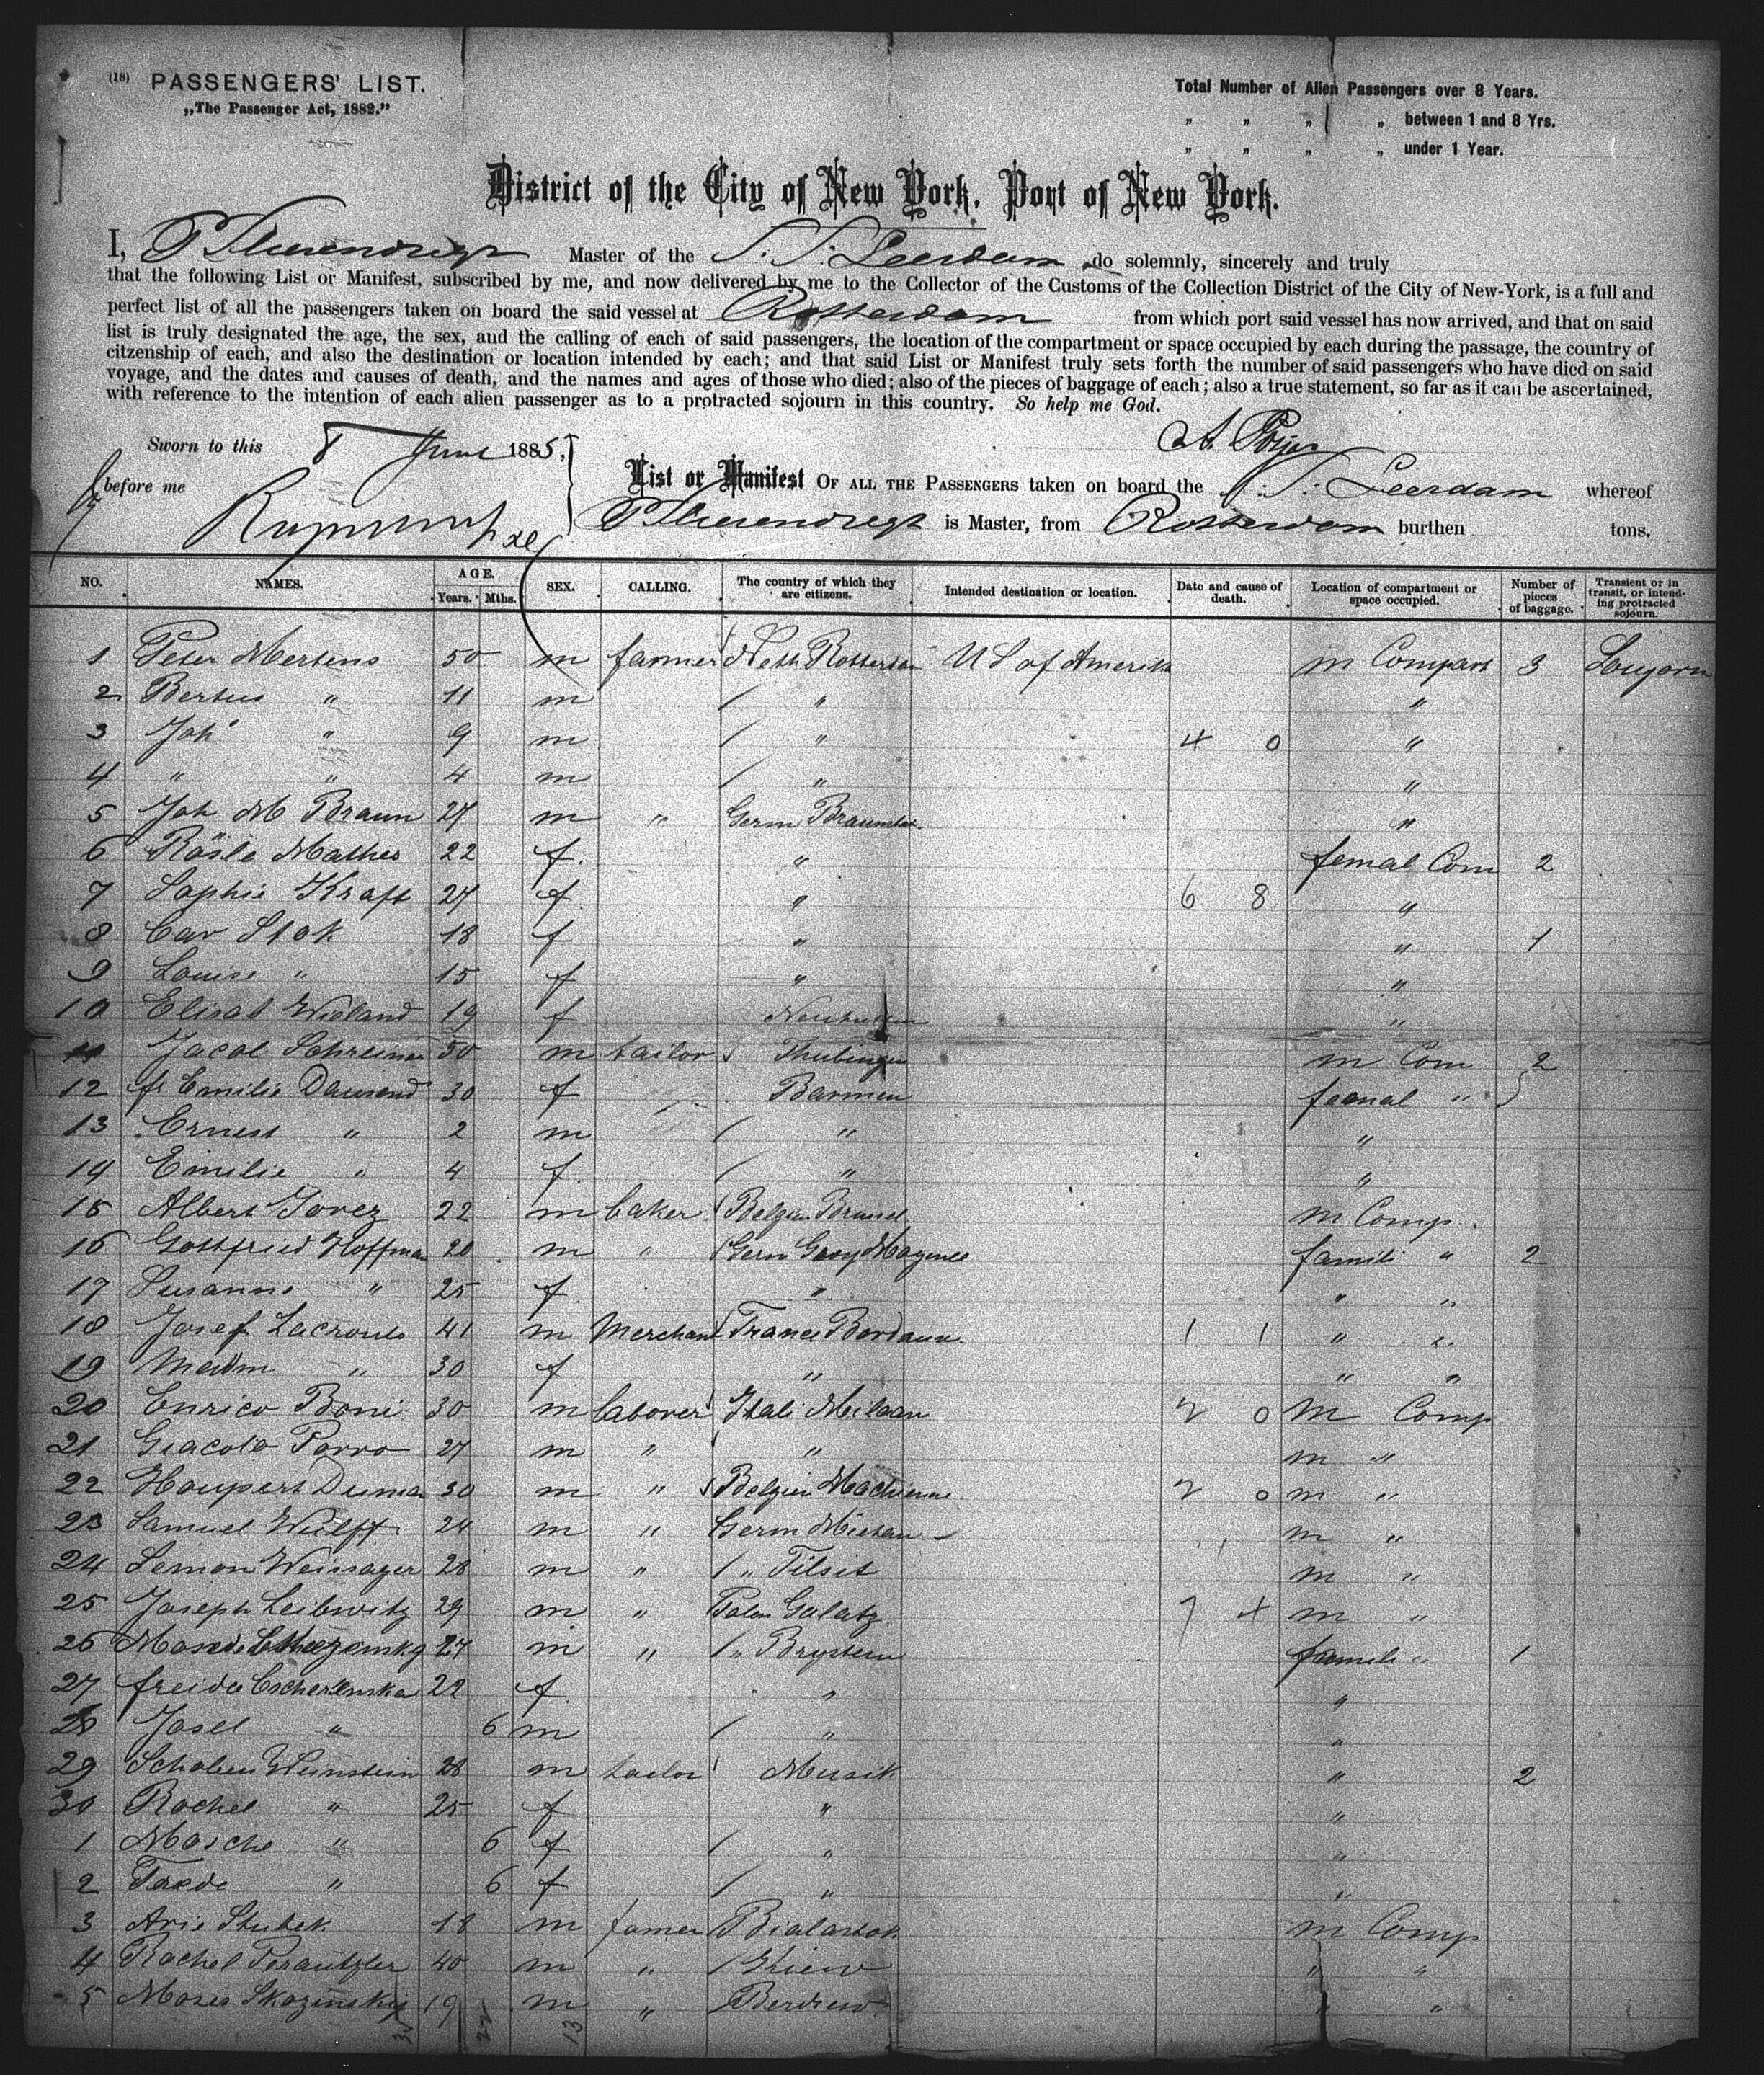 (18) PASSENGERS' LIST.
„The Passenger Act, 1882."
Total Number of Alien Passengers over 8 Years.
„ „ „ „ between 1 and 8 Yrs.
„ „ „ „ under 1 Year.
District of the City of New York, Port of New York.
I, Master of the S. S. Leerdam do solemnly, sincerely and truly
that the following List or Manifest, subscribed by me, and now delivered by me to the Collector of the Customs of the Collection District of the City of New-York, is a full and
perfect list of all the passengers taken on board the said vessel at Rotterdam from which port said vessel has now arrived, and that on said
list is truly designated the age, the sex, and the calling of each of said passengers, the location of the compartment or space occupied by each during the passage, the country of
citzenship of each, and also the destination or location intended by each; and that said List or Manifest truly sets forth the number of said passengers who have died on said
voyage, and the dates and causes of death, and the names and ages of those who died; also of the pieces of baggage of each; also a true statement, so far as it can be ascertained,
with reference to the intention of each alien passenger as to a protracted sojourn in this country. So help me God.
Sworn to this 8 June 1885,
before me
List or Manifest OF ALL THE PASSENGERS taken on board the S. S. Leerdam whereof
is Master, from Rotterdam burthen tons.
NO. NAMES. AGE. Years. Mths. SEX. CALLING. The country of which they are citizens. Intended destination or location. Date and cause of death. Location of compartment or space occupied. Number of pieces of baggage. Transient or in transit, or intending protracted sojourn.
1 Peter Mertens 50 m farmer Neth Rotterdam U S of Amerik m Compart 3
2 Bertus " 11 m " "
3 Joh " 9 m " 4 0 "
4 " " 4 m " "
5 Joh M Braun 27 m " Germ "
6 Rösle Mathes 22 f. " femal Com 2
7 Sophie Kraft 27 f. " 6 8 "
8 Car Stok 18 f " " 1
9 Louise " 15 f " "
10 Elisab Wieland 19 f "
11 50 m tailor m Com 2
12 fr Emilie 30 f Barmen femal "
13 Ernest " 2 m " "
14 Emilie " 4 f. " "
15 Albert 22 m baker Belgien Brussel m Comp.
16 Gottfried Hoffman 20 m " Germ famili " 2
17 Susanne " 25 f. " " "
18 Josef 41 m Merchant France 1 1 " "
19 " 30 f. " " "
20 Enrico Boni 30 m laborer Itali Milaan 2 0 m Comp
21 Porro 27 m " " m "
22 30 m " Belgien 2 0 m "
23 Samuel Wulff 24 m " Germ m "
24 Simon 28 m " " Tilsit m "
25 Joseph Leibwitz 29 m " Polen Galatz 7 4 m "
26 27 m " " famili " 1
27 freida 22 f. " "
28 Josel " 6 m " "
29 28 m tailor " 2
30 Rachel " 25 f " "
1 Mosche " 6 f " "
2 " 6 f " "
3 18 m farmer m Comp
4 Rachel 40 m " Kiew " "
5 Moses 19 m " " "